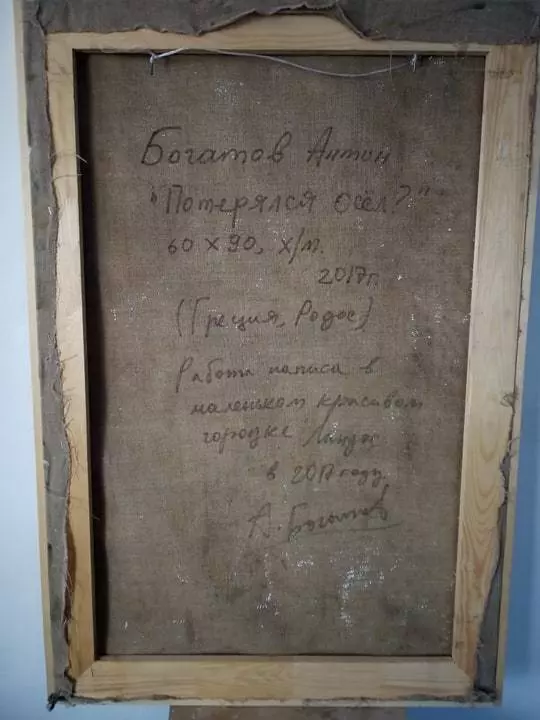 Богатов Антон
"Потерялся осёл?"
60 х 90, х/м.
2017г.
(Греция, Родос)
Работа написа в
маленьком красивом
городке Линдос
в 2017 году
А. Богатов